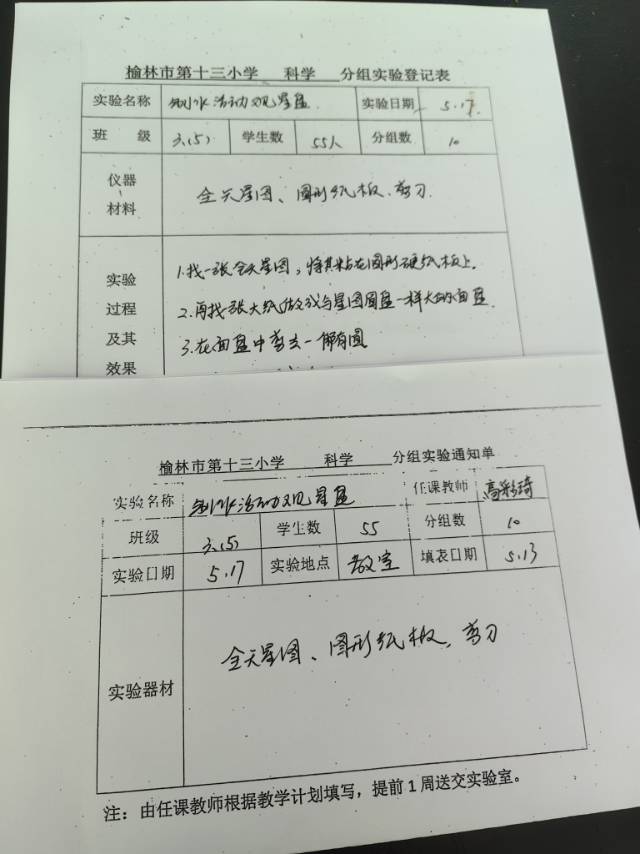 榆林市第十三小学 科学 分组实验登记表
实验名称 制作活动观星盘 实验日期 5.17
班 级 三(5) 学生数 55人 分组数 10
仪器
材料
全天星图、圆形纸板、剪刀
实验
过程
及其
效果
1.找一张全天星图,将其粘在圆形硬纸板上。
2.再找张大纸做成与星图圆盘一样大的面盘
3.在面盘中剪去一椭圆
榆林市第十三小学 科学 分组实验通知单
实验名称 制作活动观星盘 任课教师 高彩琦
班级 三(5) 学生数 55 分组数 10
实验日期 5.17 实验地点 教室 填表日期 5.13
实验器材 全天星图、圆形纸板、剪刀
注:由任课教师根据教学计划填写,提前1周送交实验室。